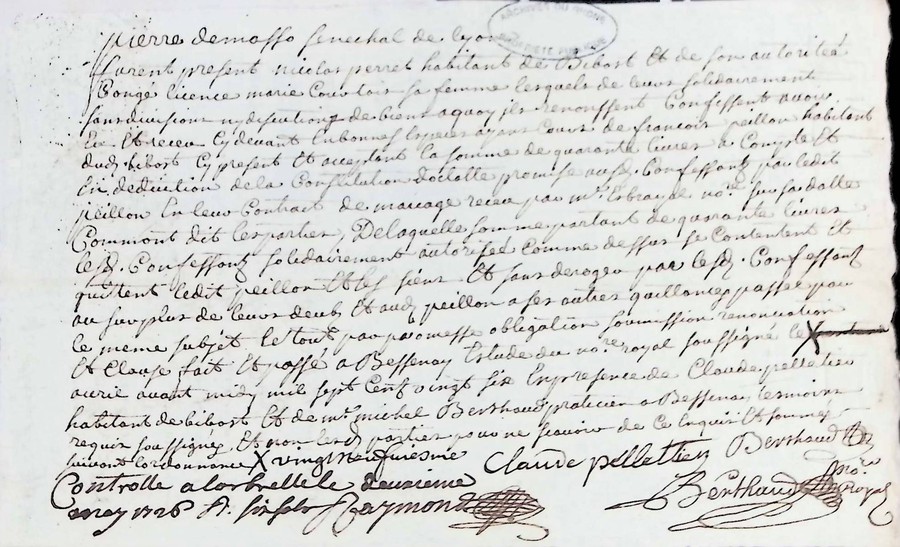 pierre demasso senechal de lyon
ARCHIVES DU RHONE
PROPRIETE PUBLIQUE
furent present nicolas perret habitant de Bibost Et de son autoritéé
Congé licence marie Courtois sa femme lesquels de leurs solidairement
sans division ny discution de biens aquoy ils renonssent Confessent avoir
Eu Et receu Cydevant En bonnes Especes ayant Cours de francois peillon habitant
dud. bibost Cy present Et acceptant la somme de quarante livres a Compte Et
En deduction de la Constitution promise ausd. Confessantz par ledit
peillon En leur Contract de mariage receu par mr. no.re sur sa datte
Comme ont dit les parties, De laquelle somme partant de quarante livres
lesd. Confessantz solidairement autorisée comme dessus se Contentent Et
quittent ledit peillon Et les siens Et sans deroger par lesd. Confessantz
au surplus de leurs deubs Et aud. peillon a ses autres quittances passée pour
le meme subjet le tout par promesse obligation soumission renonciation
Et Clause fait Et passé a Bessenay Estude du no.re royal soussigné le X
avril avant midy mil sept Cent vingt six En presence de Claude pelletier
habitant de bibost Et de mr. michel Berthaud praticien a Bessenay tesmoins
requis soussignez Et non lesd. parties pour ne scavoir de ce Enquis Et sommez
suivant lordonnance X vingt neufviesme
Claude pelletier Berthaud
Controlle a larbrelle le deuxieme
may 1726 R. six sols Raymond
Berthaud no.re Royal